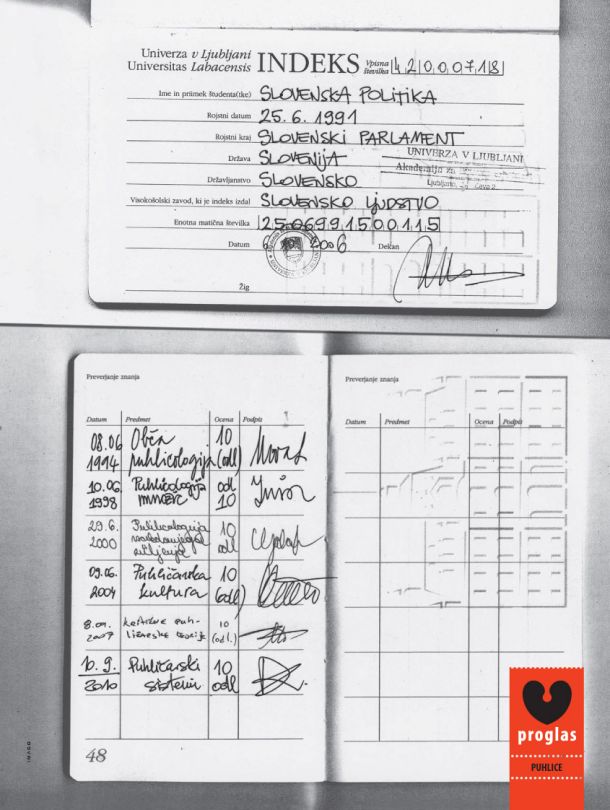 Univerza v Ljubljani
Universitas Labacensis
INDEKS
Vpisna številka 42000718
Ime in priimek študenta(tke) SLOVENSKA POLITIKA
Rojstni datum 25. 6. 1991
Rojstni kraj SLOVENSKI PARLAMENT
Država SLOVENIJA
UNIVERZA V LJUBLJANI
Akademija za
Državljanstvo SLOVENSKO
Ljubljana,
Visokošolski zavod, ki je indeks izdal SLOVENSKO LJUDSTVO
Enotna matična številka 2506991500115
Datum 2006 Dekan
Žig
Preverjanje znanja
Datum Predmet Ocena Podpis
08.06 Obča 10
1994 puhlicologija (odl)
10.06. Puhlicologija odl
1998 10
29.6. Puhlicologija 10
2000 odl
09.06. Puhličarska 10
2004 kultura (odl)
8.01. puh- 10
2007 (odl.)
10.9. Puhličarski 10
2010 sistemi odl
48
Preverjanje znanja
Datum Predmet Ocena Podpis
proglas
PUHLICE
IMAGO